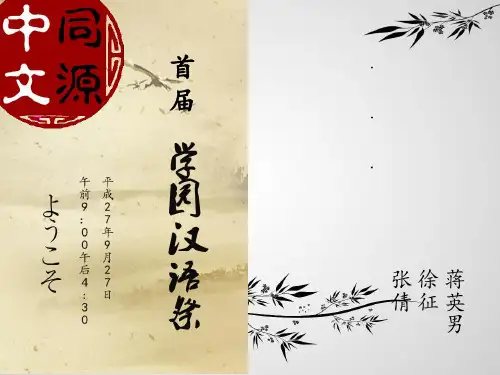 同源
中文
首届
学园汉语祭
平成27年9月27日
午前9:00午后4:30
ようこそ
蒋英男
徐征
张倩